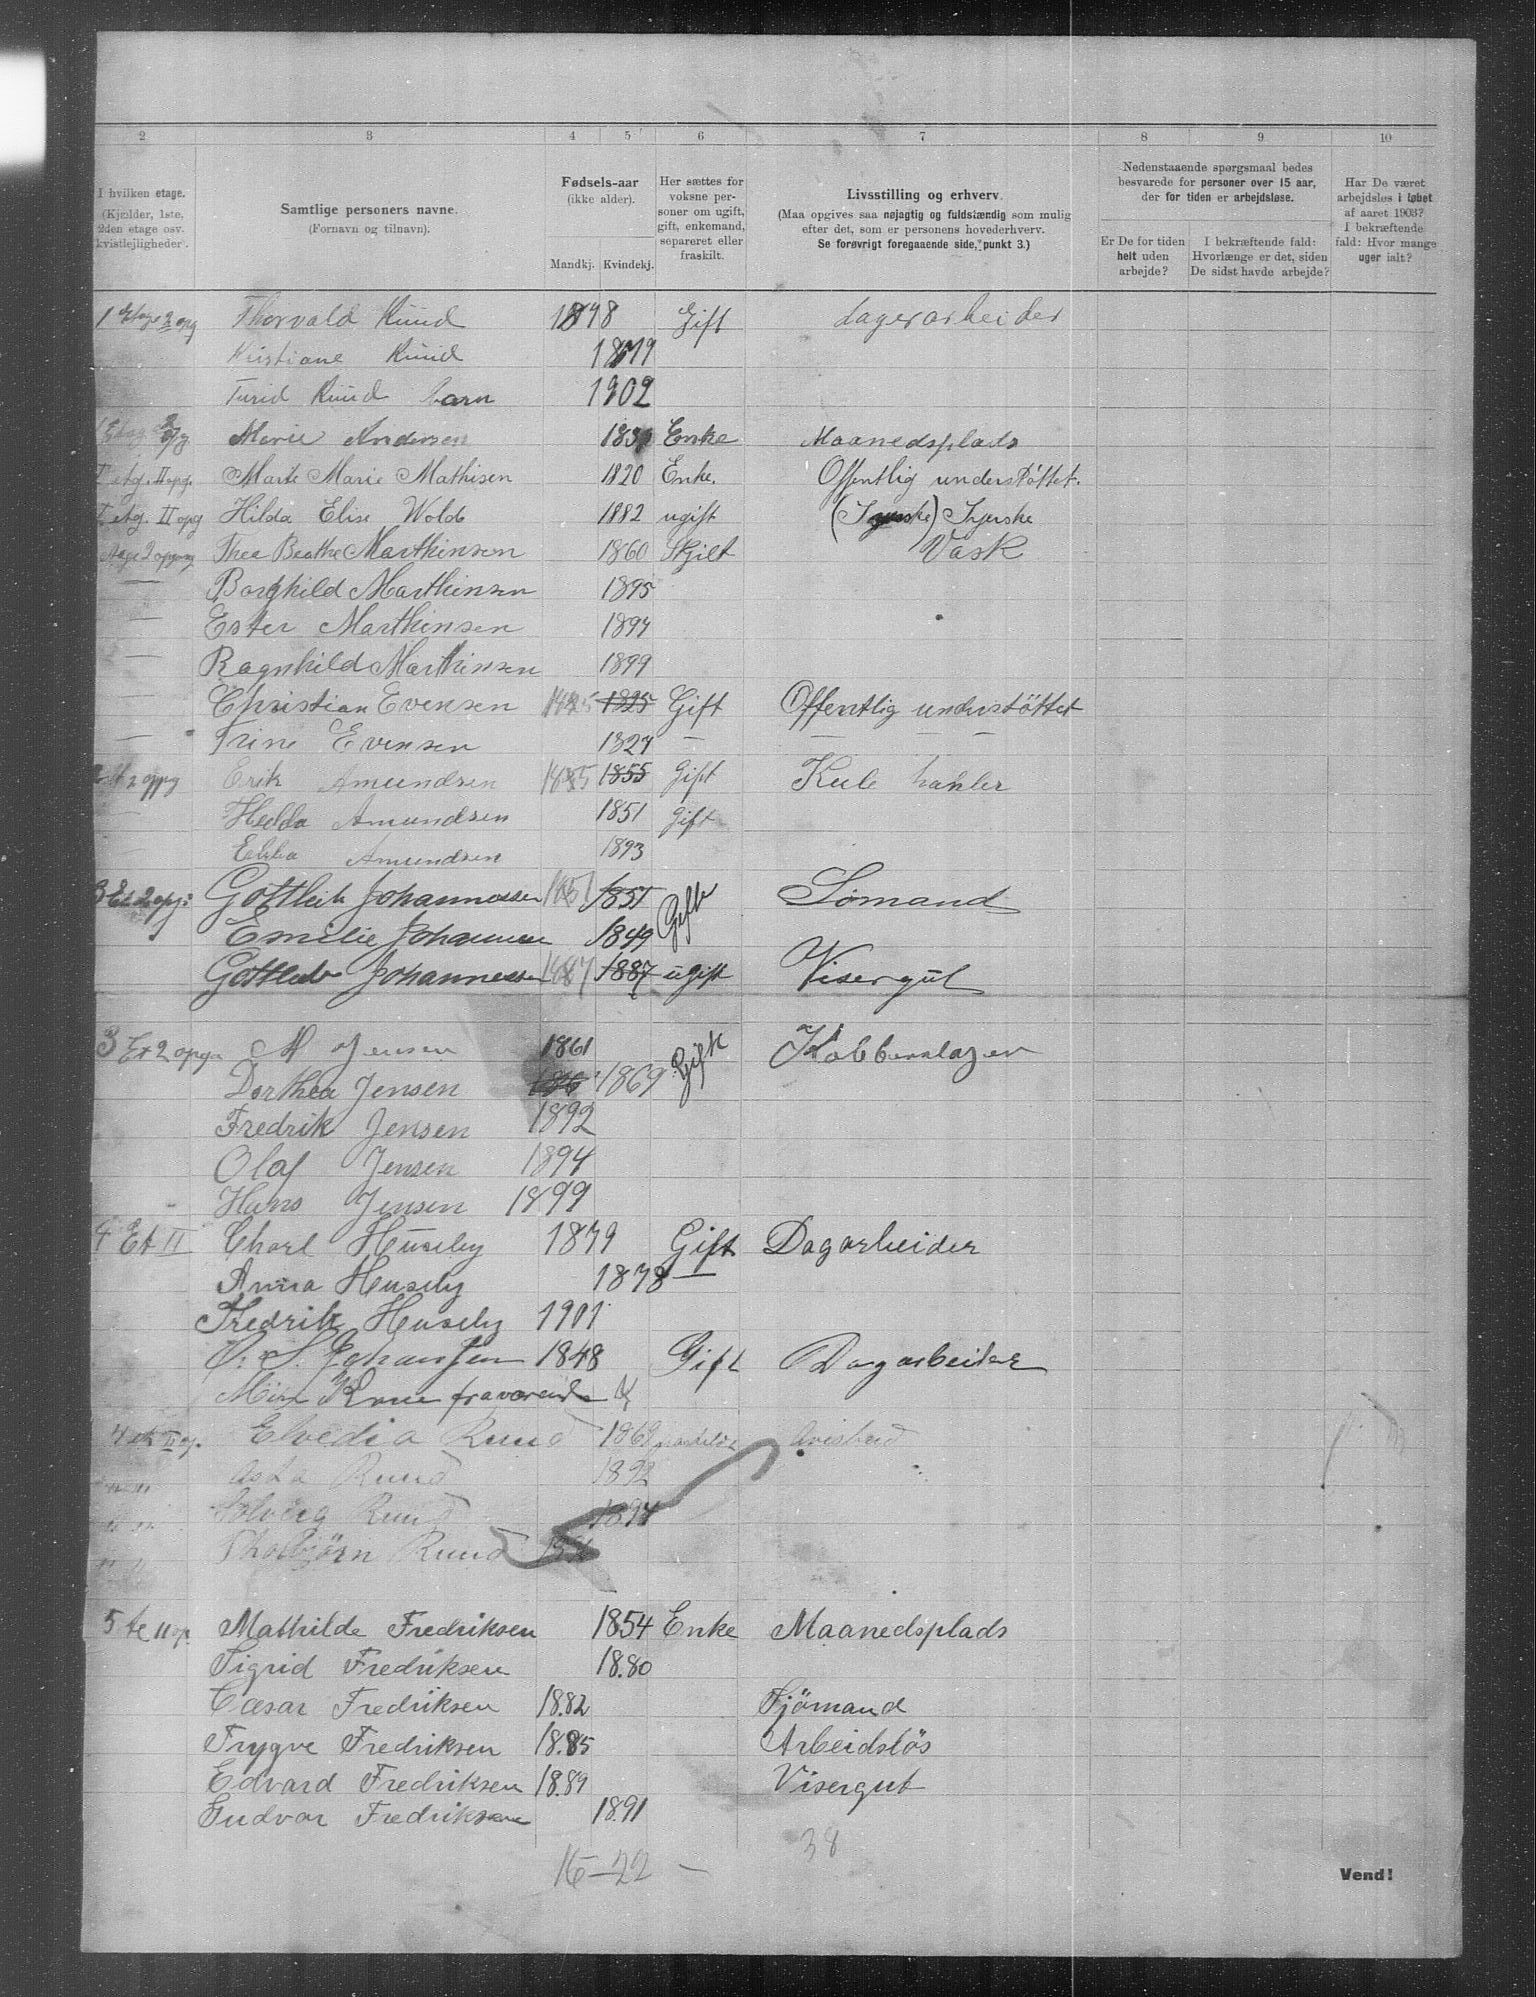 2 3 4 5 6 7 8 9 10
I hvilken etage. (Kjælder, 1ste, 2den etage osv. kvistlejligheder).
Samtlige personers navne. (Fornavn og tilnavn).
Fødsels-aar (ikke alder).
Mandkj. Kvindekj.
Her sættes for voksne personer om ugift, gift, enkemand, separeret eller fraskilt.
Livsstilling og erhverv. (Maa opgives saa nøjagtig og fuldstændig som mulig efter det, som er personens hovederhverv. Se forøvrigt foregaaende side, punkt 3.)
Nedenstaaende spørgsmaal bedes besvarede for personer over 15 aar, der for tiden er arbejdsløse.
Er De for tiden helt uden arbejde?
I bekræftende fald: Hvorlænge er det, siden De sidst havde arbejde?
Har De været arbejdsløs i løbet af aaret 1903? I bekræftende fald: Hvor mange uger ialt?
1 Etage 2 opg Thorvald Ruud 1878 Gift Lagerarbeider
Kristiane Ruud 1879
Turid Ruud barn 1902
Marie Andersen Enke Maanedsplads
I etg. II opg. Marte Marie Mathisen 1820 Enke. Offentlig understøttet.
I etg. II opg Hilda Elise Wold 1882 ugift (Syerske) Syerske
Etage 2 opgang Thea Beathe Marthinsen 1860 Skjilt Vask
— Borghild Marthinsen 1895
— Ester Marthinsen 1897
— Ragnhild Marthinsen 1899
— Christian Evensen 1825 1825 Gift Offentlig understöttet
— Trine Evensen 1827 — — — —
2 Et 2 opg Erik Amundsen 1855 1855 Gift
— Hedda Amundsen 1851 Gift
— Amundsen 1893
3 Et 2 opg: Gottleib Johannessen 1851 1851 Gift Sömand
Emilie Johannessen 1849
Gottleib Johannessen 1887 1887 ugift Visergut
3 Et 2 opga M Jensen 1861 Gift Kobberslager
Dorthea Jensen 1869
Fredrik Jensen 1892
Olaf Jensen 1894
Hans Jensen 1899
4 Et II Charl Huseby 1879 Gift Dagarbeider
Anna Huseby 1878 —
Fredrik Huseby 1901
O. S. Johansen 1848 Gift Dagarbeider
Min Kone fraværende
4 et II op. Elvedia Ruud 1869 Avisbud
" " Asta Ruud 1892
" " Solveig Ruud 1894
" " Thorbjörn Ruud
5 te II op. Mathilde Fredriksen 1854 Enke Maanedsplads
Sigrid Fredriksen 18.80
Cæsar Fredriksen 18.82 Sjömand
Trygve Fredriksen 18.85 Arbeidslös
Edvard Fredriksen 18.89 Visergut
Gudvor Fredriksen 18.91
16 – 22 – 38
Vend!